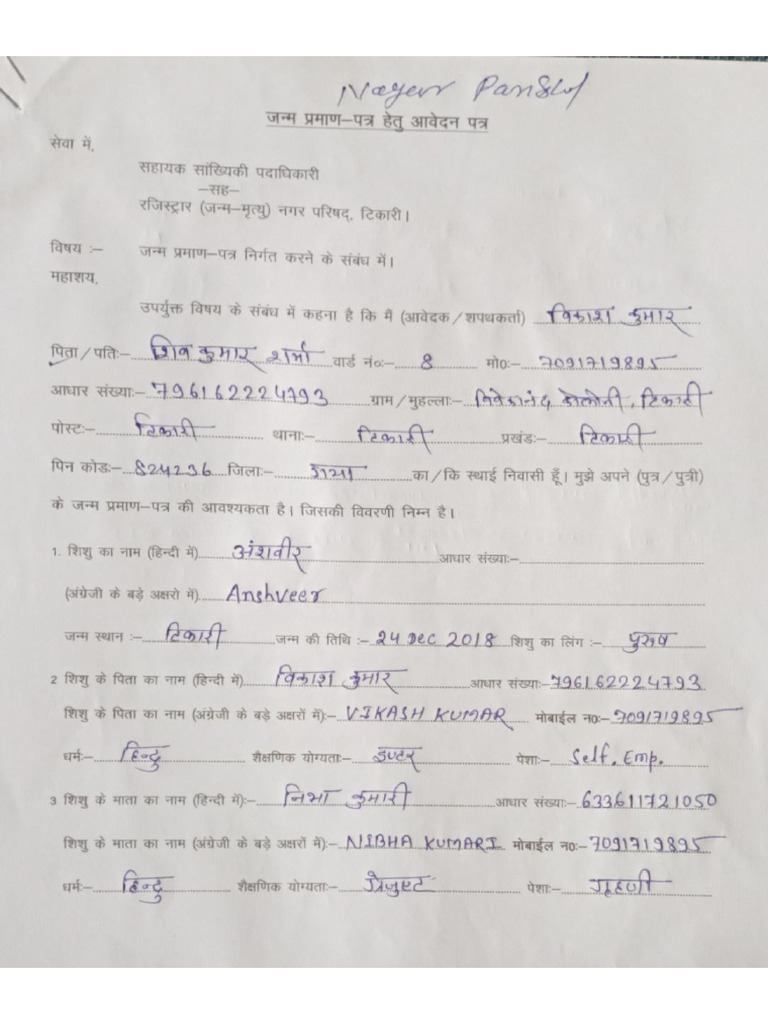 Nagar Parishad
जन्म प्रमाण–पत्र हेतु आवेदन पत्र
सेवा में,
सहायक सांख्यिकी पदाधिकारी
–सह–
रजिस्ट्रार (जन्म–मृत्यु) नगर परिषद्, टिकारी।
विषय :– जन्म प्रमाण–पत्र निर्गत करने के संबंध में।
महाशय,
उपर्युक्त विषय के संबंध में कहना है कि मै (आवेदक/शपथकर्ता) विकाश कुमार
पिता/पतिः– शिव कुमार शर्मा वार्ड नं०ः– 8 मो०ः– 7091719895
आधार संख्याः– 796162224793 ग्राम/मुहल्लाः– विवेकानंद कोलोनी, टिकारी
पोस्टः– टिकारी थानाः– टिकारी प्रखंडः– टिकारी
पिन कोडः– 824236 जिलाः– गया का/कि स्थाई निवासी हूँ। मुझे अपने (पुत्र/पुत्री)
के जन्म प्रमाण–पत्र की आवश्यकता है। जिसकी विवरणी निम्न है।
1. शिशु का नाम (हिन्दी में) अंशवीर आधार संख्याः–
(अंग्रेजी के बड़े अक्षरो में) Anshveer
जन्म स्थान :– टिकारी जन्म की तिथि :– 24 Dec 2018 शिशु का लिंग :– पुरुष
2 शिशु के पिता का नाम (हिन्दी में) विकाश कुमार आधार संख्याः– 796162224793
शिशु के पिता का नाम (अंग्रेजी के बड़े अक्षरों में):– VIKASH KUMAR मोबाईल न०ः– 7091719895
धर्मः– हिन्दु शैक्षणिक योग्यताः– इण्टर पेशाः– Self. Emp.
3 शिशु के माता का नाम (हिन्दी में):– निभा कुमारी आधार संख्याः– 633611721050
शिशु के माता का नाम (अंग्रेजी के बड़े अक्षरों में):– NIBHA KUMARI मोबाईल न०ः– 7091719895
धर्मः– हिन्दु शैक्षणिक योग्यताः– ग्रेजुएट पेशाः– गृहणी